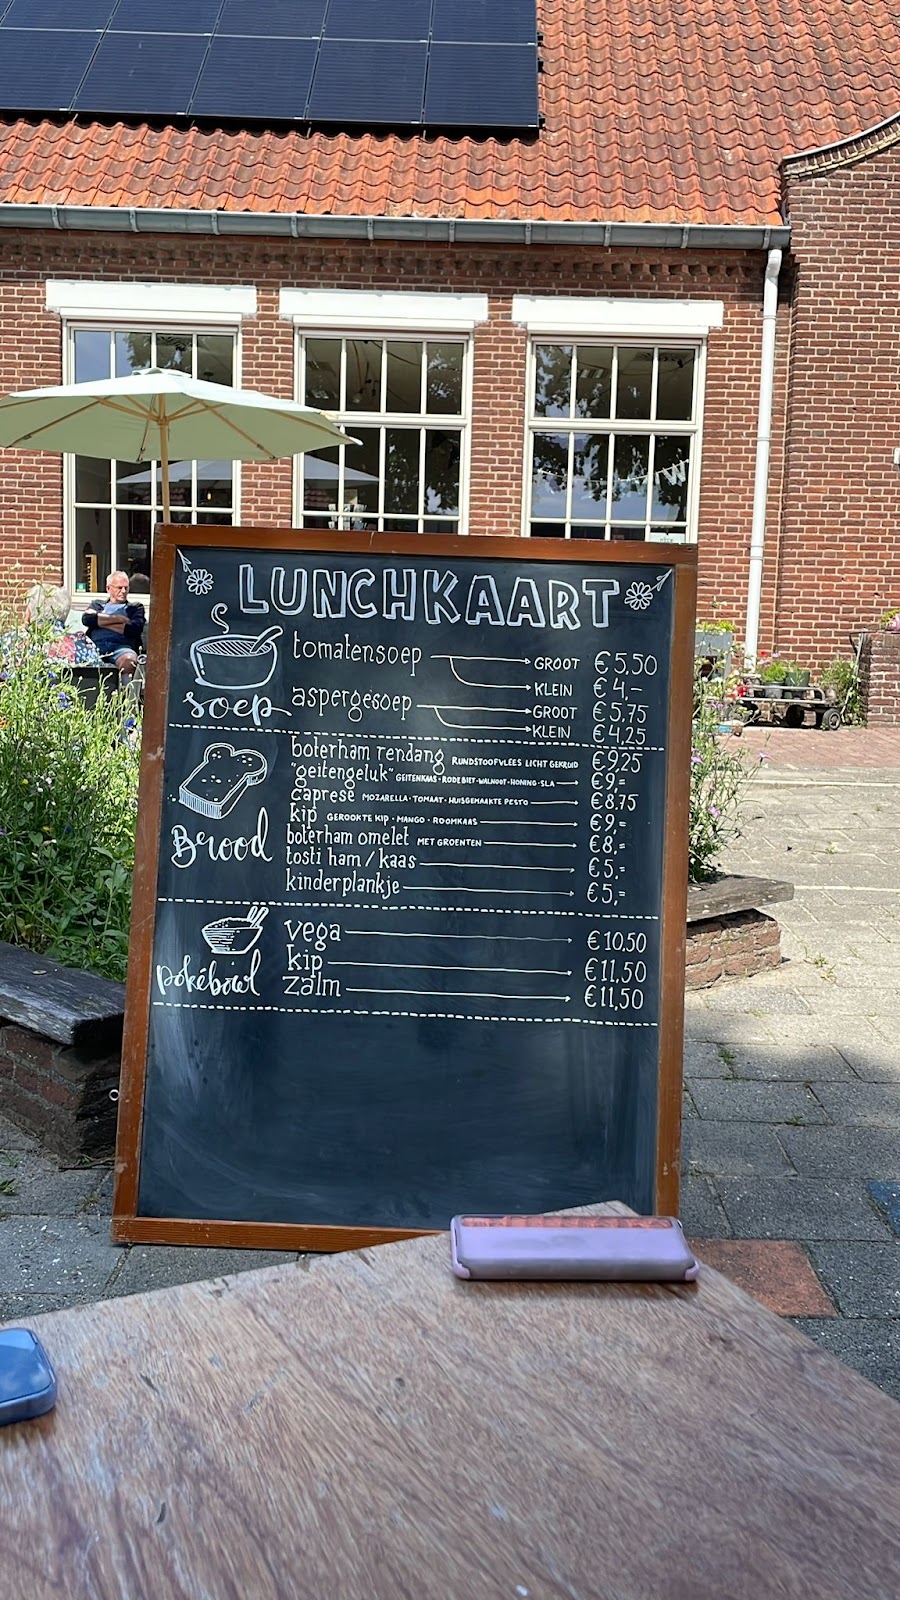 LUNCHKAART
soep
tomatensoep GROOT €5,50
KLEIN €4,-
aspergesoep GROOT €5,75
KLEIN €4,25
Brood
boterham rendang RUNDSTOOFVLEES LICHT GEKRUID €9,25
"geitengeluk" GEITENKAAS · RODE BIET · WALNOOT · HONING · SLA €9,=
caprese MOZARELLA · TOMAAT · HUISGEMAAKTE PESTO €8,75
kip GEROOKTE KIP · MANGO · ROOMKAAS €9,=
boterham omelet MET GROENTEN €8,=
tosti ham / kaas €5,=
kinderplankje €5,=
pokébowl
vega €10,50
kip €11,50
zalm €11,50